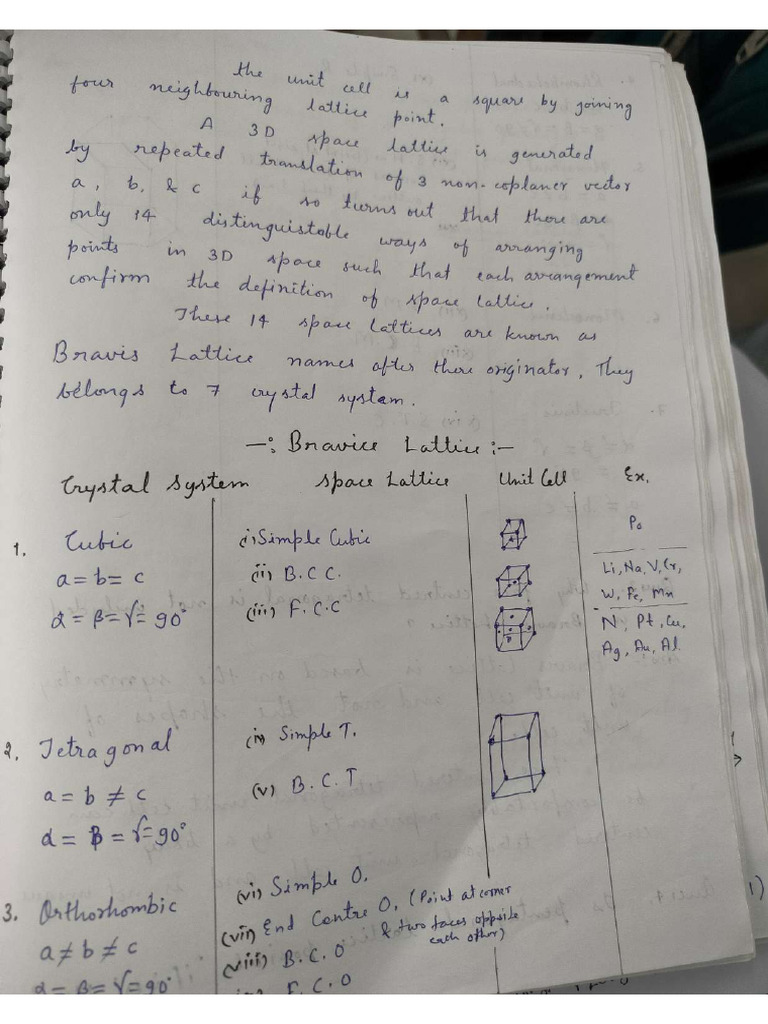 the unit cell is a square by joining
four neighbouring lattice point.
A 3D space lattice is generated
by repeated translation of 3 non-coplaner vector
a, b, & c if so turns out that there are
only 14 distinguistable ways of arranging
points in 3D space such that each arrangement
confirm the definition of space lattice.
These 14 space lattices are known as
Bravis Lattice names after there originator. They
belongs to 7 crystal system.
-: Bravice Lattice :-
Crystal System Space Lattice Unit Cell Ex.
1. Cubic (i) Simple Cubic Po
a = b = c (ii) B.C.C. Li, Na, V, Cr,
W, Fe, Mn
α = β = γ = 90° (iii) F.C.C N, Pt, Cu,
Ag, Au, Al.
2. Tetragonal (iv) Simple T.
a = b ≠ c (v) B.C.T
α = β = γ = 90°
3. Orthorhombic (vi) Simple O.
(vii) End Centre O. (Point at corner
& two faces opposite
each other)
a ≠ b ≠ c (viii) B.C.O
α = β = γ = 90° F.C.O